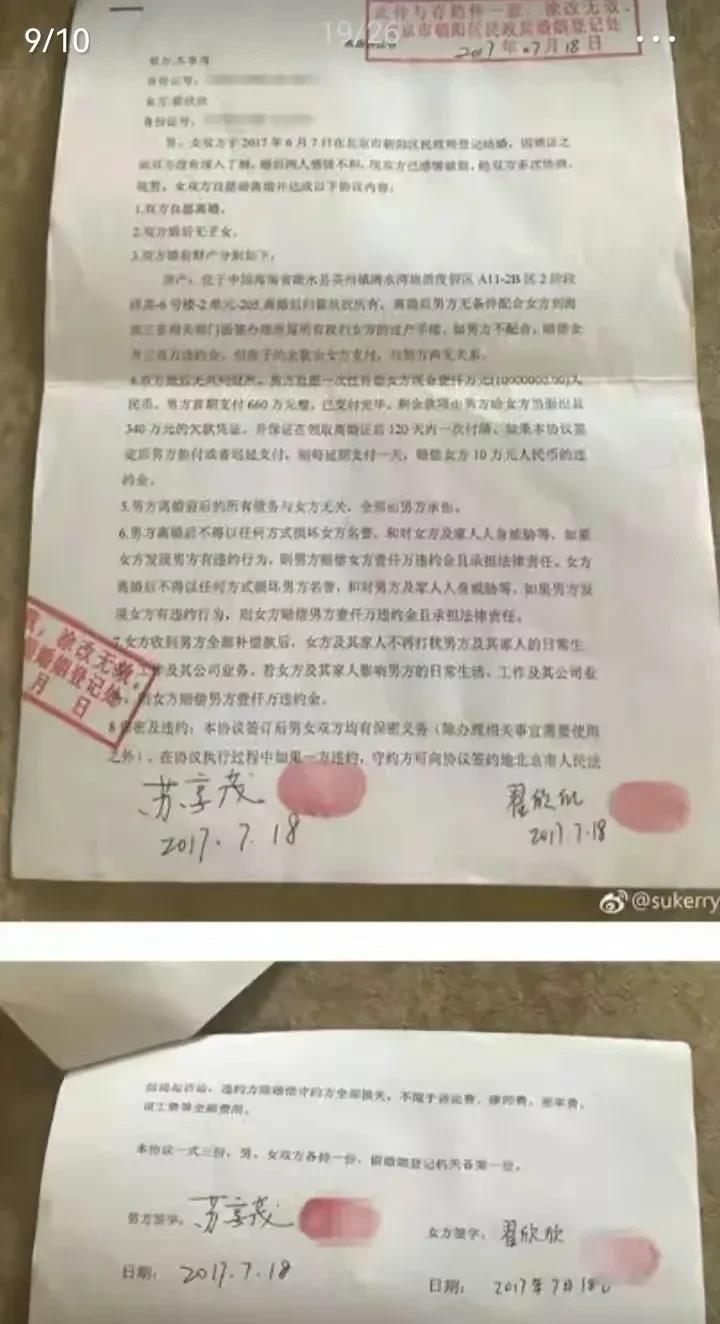 9/10
19/26
此件与存档件一致，涂改无效。
北京市朝阳区民政局婚姻登记处
2017年07月18日
离婚协议书
男方:苏享茂
身份证号：
女方:翟欣欣
身份证号：
男、女双方于2017年6月7日在北京市朝阳区民政局登记结婚，因婚谈之
前双方没有深入了解，婚后两人感情不和，现双方已感情破裂，经双方多次协商，
现男、女双方自愿离婚并达成以下协议内容：
1.双方自愿离婚。
2.双方婚后无子女。
3.双方婚前财产分割如下：
房产：位于中国海南省陵水县英州镇清水湾旅游度假区A11-2B区2阶段
6号楼-2单元-205,离婚后归翟欣欣所有，离婚后男方无条件配合女方到海
南三亚相关部门办理房屋所有权归女方的过户手续。如男方不配合，赔偿女
方三百万违约金。但房子的余款由女方支付，与男方再无关系。
4.双方婚后无共同财产。男方自愿一次性补偿女方现金壹仟万元(10000000.00)人
民币。男方首期支付660万元整，已支付完毕。剩余款项由男方给女方当面出具
340万元的欠款凭证，并保证在领取离婚证后120天内一次付清。如果本协议签
定后男方拒付或者迟延支付，则每延期支付一天，赔偿女方10万元人民币的违
约金。
5.男方离婚前后的所有债务与女方无关，全部由男方承担。
6.男方离婚后不得以任何方式损坏女方名誉，和对女方及家人人身威胁等，如果
女方发现男方有违约行为，则男方赔偿女方壹仟万违约金且承担法律责任。女方
离婚后不得以任何方式损坏男方名誉，和对男方及家人人身威胁等，如果男方发
现女方有违约行为，则女方赔偿男方壹仟万违约金且承担法律责任。
7.女方收到男方全部补偿款后，女方及其家人不再打扰男方及其家人的日常生
工作及其公司业务。若女方及其家人影响男方的日常生活、工作及其公司业
，则女方赔偿男方壹仟万违约金。
涂改无效。
婚姻登记处
月 日
8.保密及违约：本协议签订后男女双方均有保密义务（除办理相关事宜需要使用
之外）。在协议执行过程中如果一方违约，守约方可向协议签约地北京市人民法
苏享茂
2017.7.18
翟欣欣
2017.7.18
@sukerry
院提起诉讼，违约方赔偿守约方全部损失，不限于诉讼费、律师费、差旅费、
误工费等全部费用。
本协议一式三份，男、女双方各持一份，留婚姻登记机关备案一份。
男方签字：苏享茂
女方签字：翟欣欣
日期：2017.7.18
日期：2017年7月18日